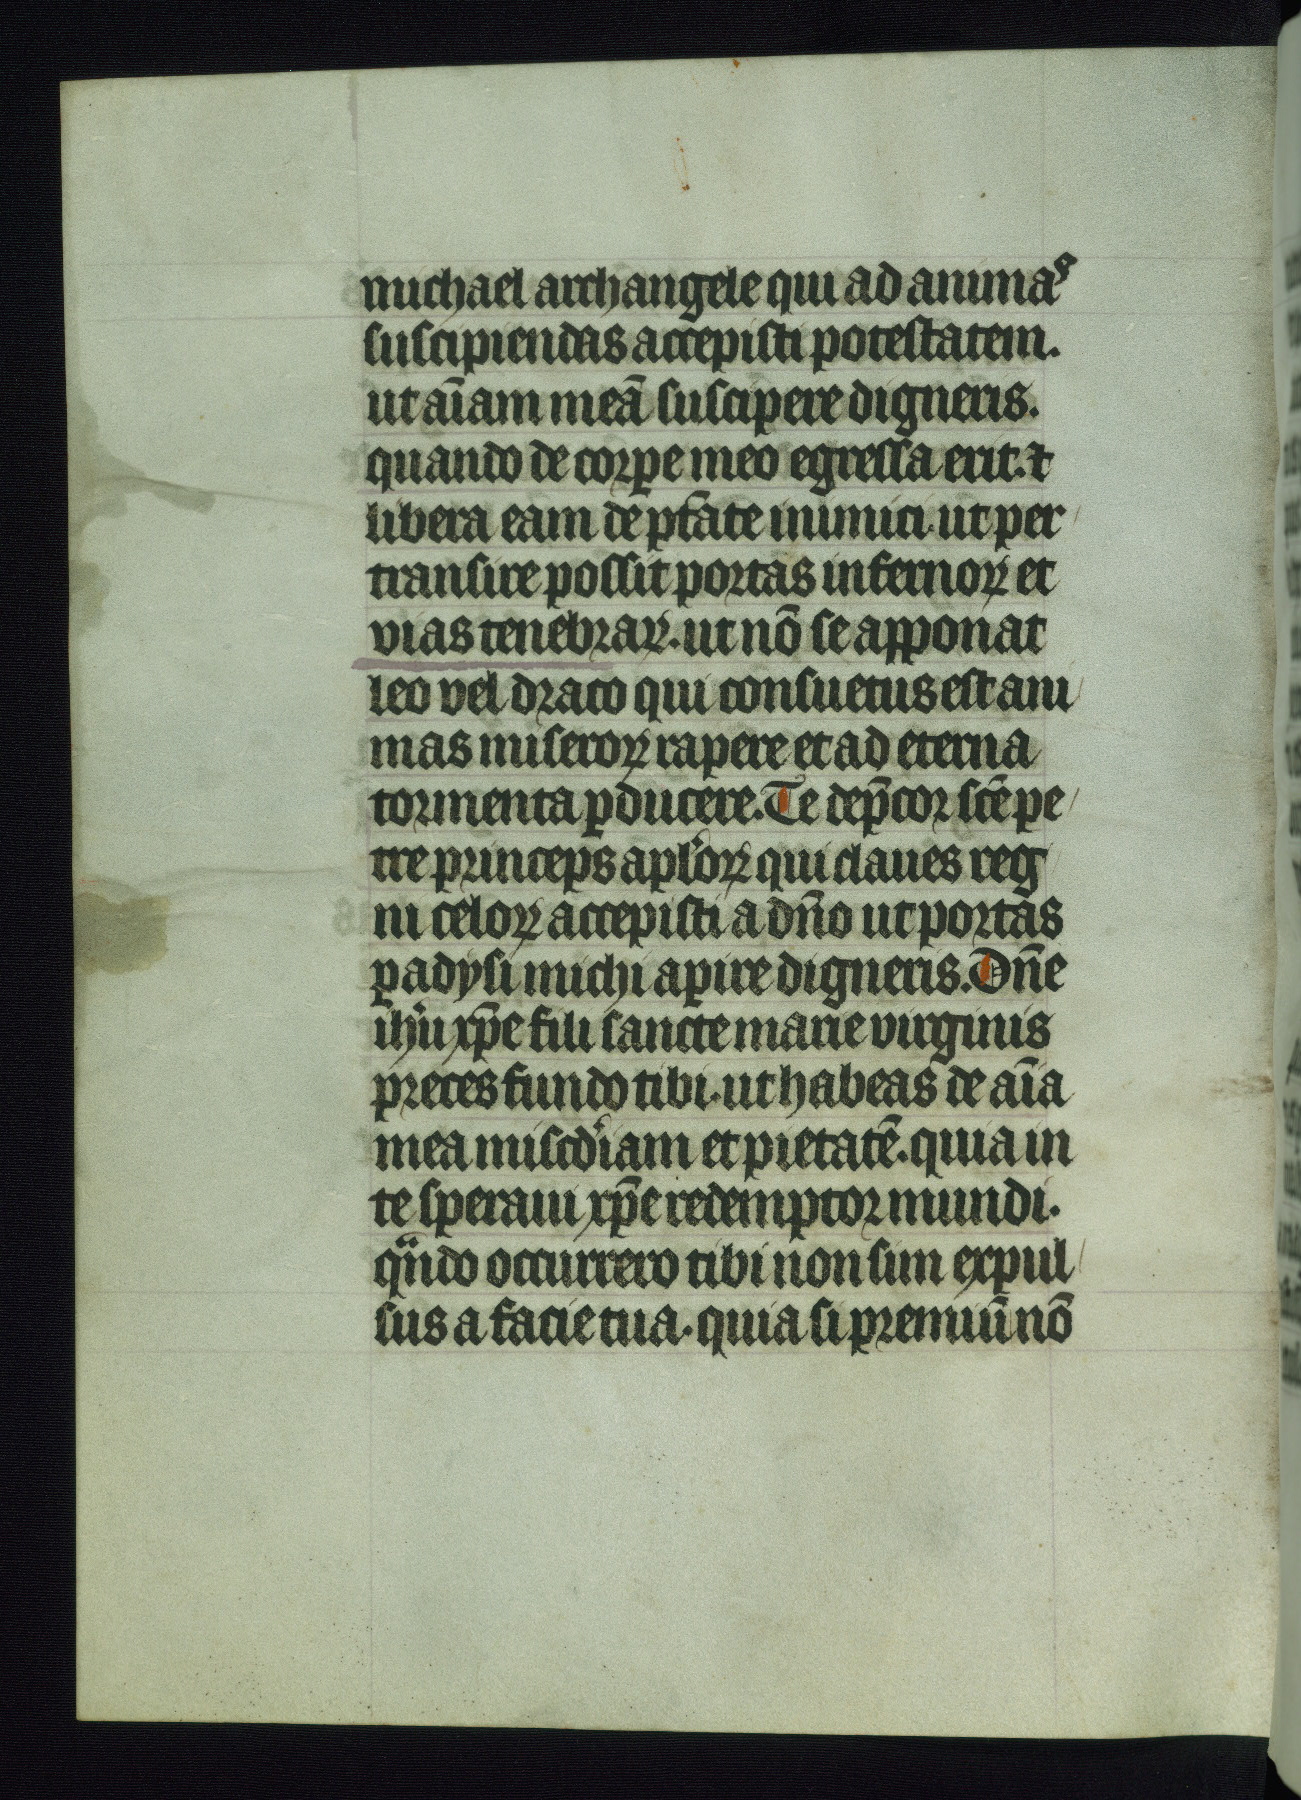 michael archangele qui ad animas
suscipiendas accepisti potestatem.
ut aīam meā suscipere digneris.
quando de corꝑe meo egressa erit. ⁊
libera eam de ptāte inimici. ut per
transire possit portas infernoꝝ et
vias tenebraꝝ. ut nō se apponat
leo vel draco qui consuetus est ani
mas miseroꝝ rapere et ad eterna
tormenta ꝑducere. Te dep̄cor scē pe
tre princeps apl̓oꝝ qui claues reg
ni celoꝝ accepisti a dn̄o ut portas
ꝑadysi michi apire digneris. Dn̄e
ih̓u xp̄e fili sancte marie virginis
preces fundo tibi. ut habeas de aīa
mea misc̓diam et pietatē. quia in
te speraui xp̄e redemptor mundi.
qn̄do occurrero tibi non sim expul
sus a facie tua. quia si premiū nō